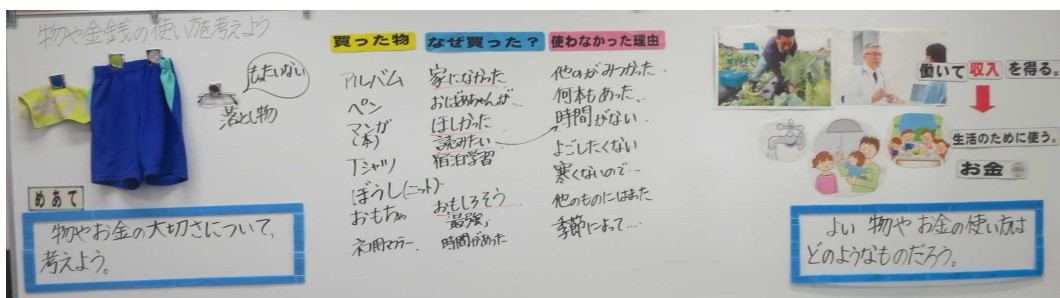 物や金銭の使い方を考えよう
もったいない
落とし物
めあて
物やお金の大切さについて、
考えよう。
買った物
アルバム
ペン
マンガ
(本)
Tシャツ
ぼうし(ニット)
おもちゃ
なぜ買った?
家になかった
おばあちゃんが…
ほしかった
読みたい
宿泊学習
おもしろそう
最強
時間があった
使わなかった理由
他のがみつかった
何本もあった
時間がない
よごしたくない
寒くないので…
他のものにはまった
季節によって…
働いて収入を得る。
生活のために使う。
お金
よい 物やお金の使い方は
どのようなものだろう。